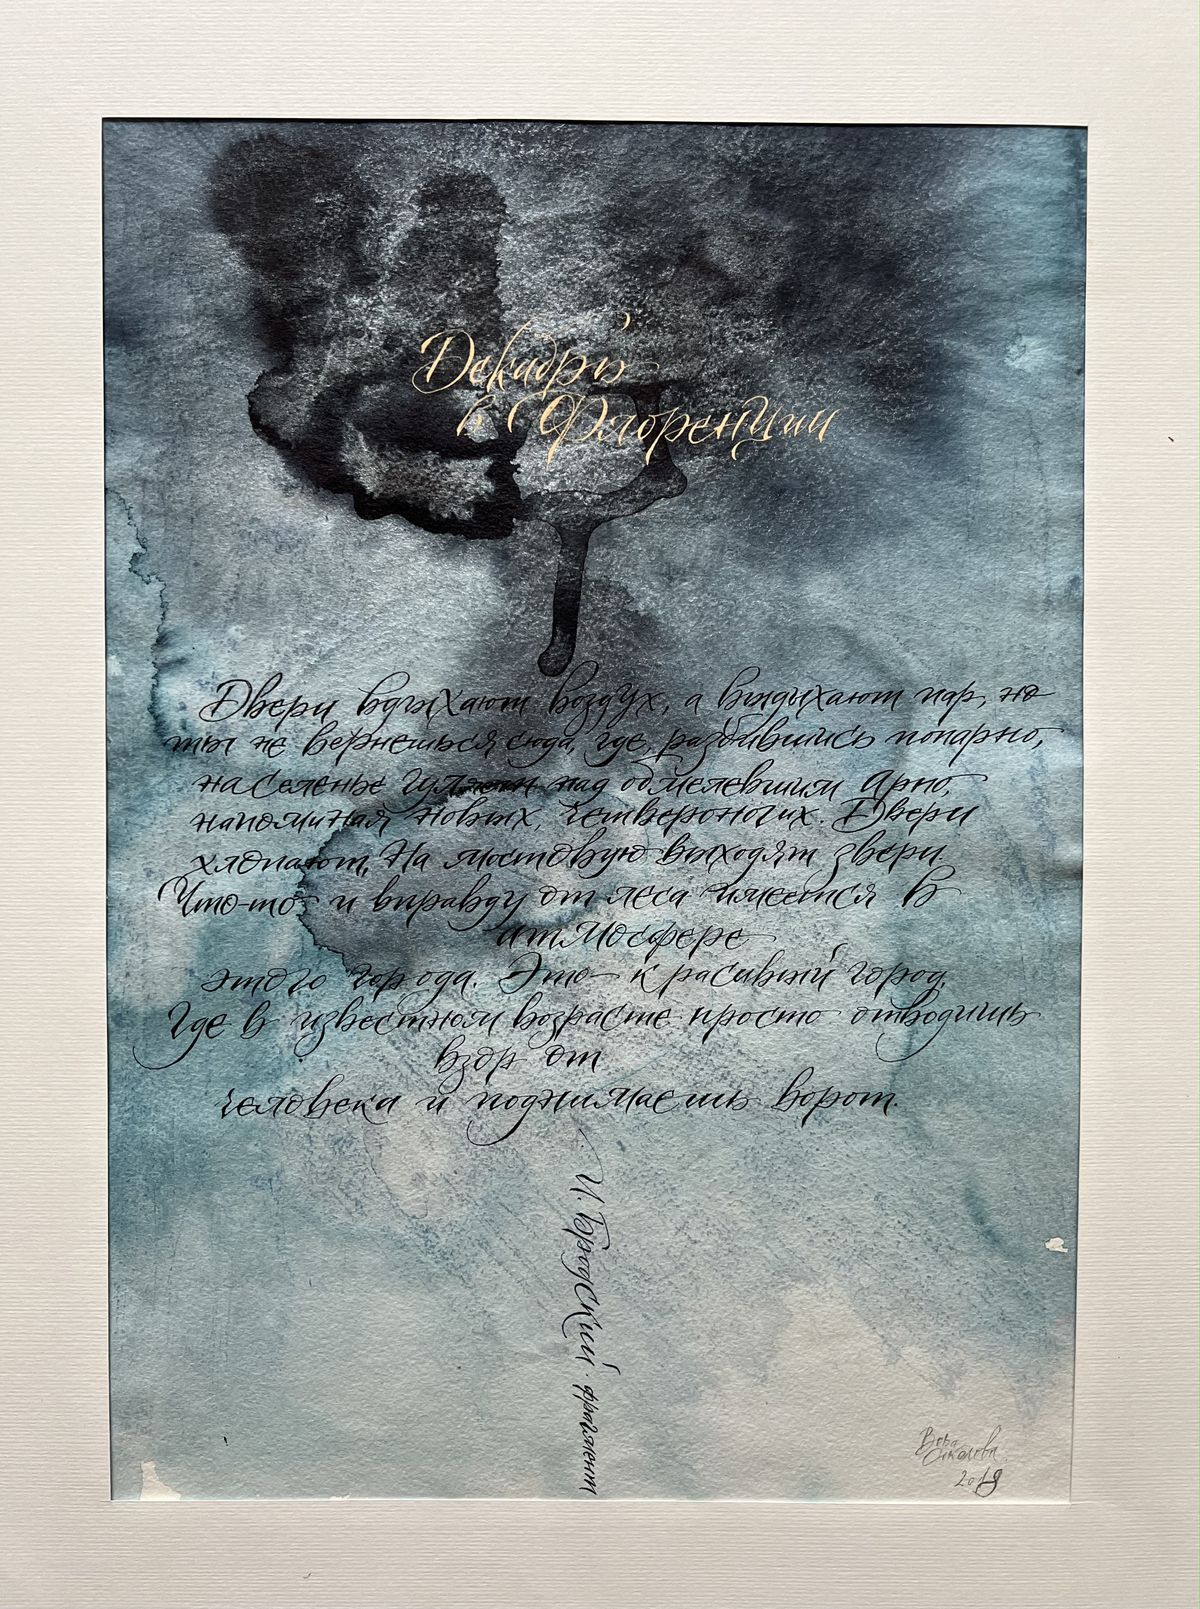 Декабрь
в Флоренции
Двери вдыхают воздух, а выдыхают пар, но
ты не вернешься сюда, где, разбившись попарно,
населенье гуляет над обмелевшим Арно,
напоминая новых четвероногих. Двери
хлопают, на мостовую выходят звери.
Что-то и вправду от леса имеется в
атмосфере
этого города. Это - красивый город,
Где в известном возрасте просто отводишь
взор от
человека и поднимаешь ворот.
И. Бродский. фрагмент
Вера
2018